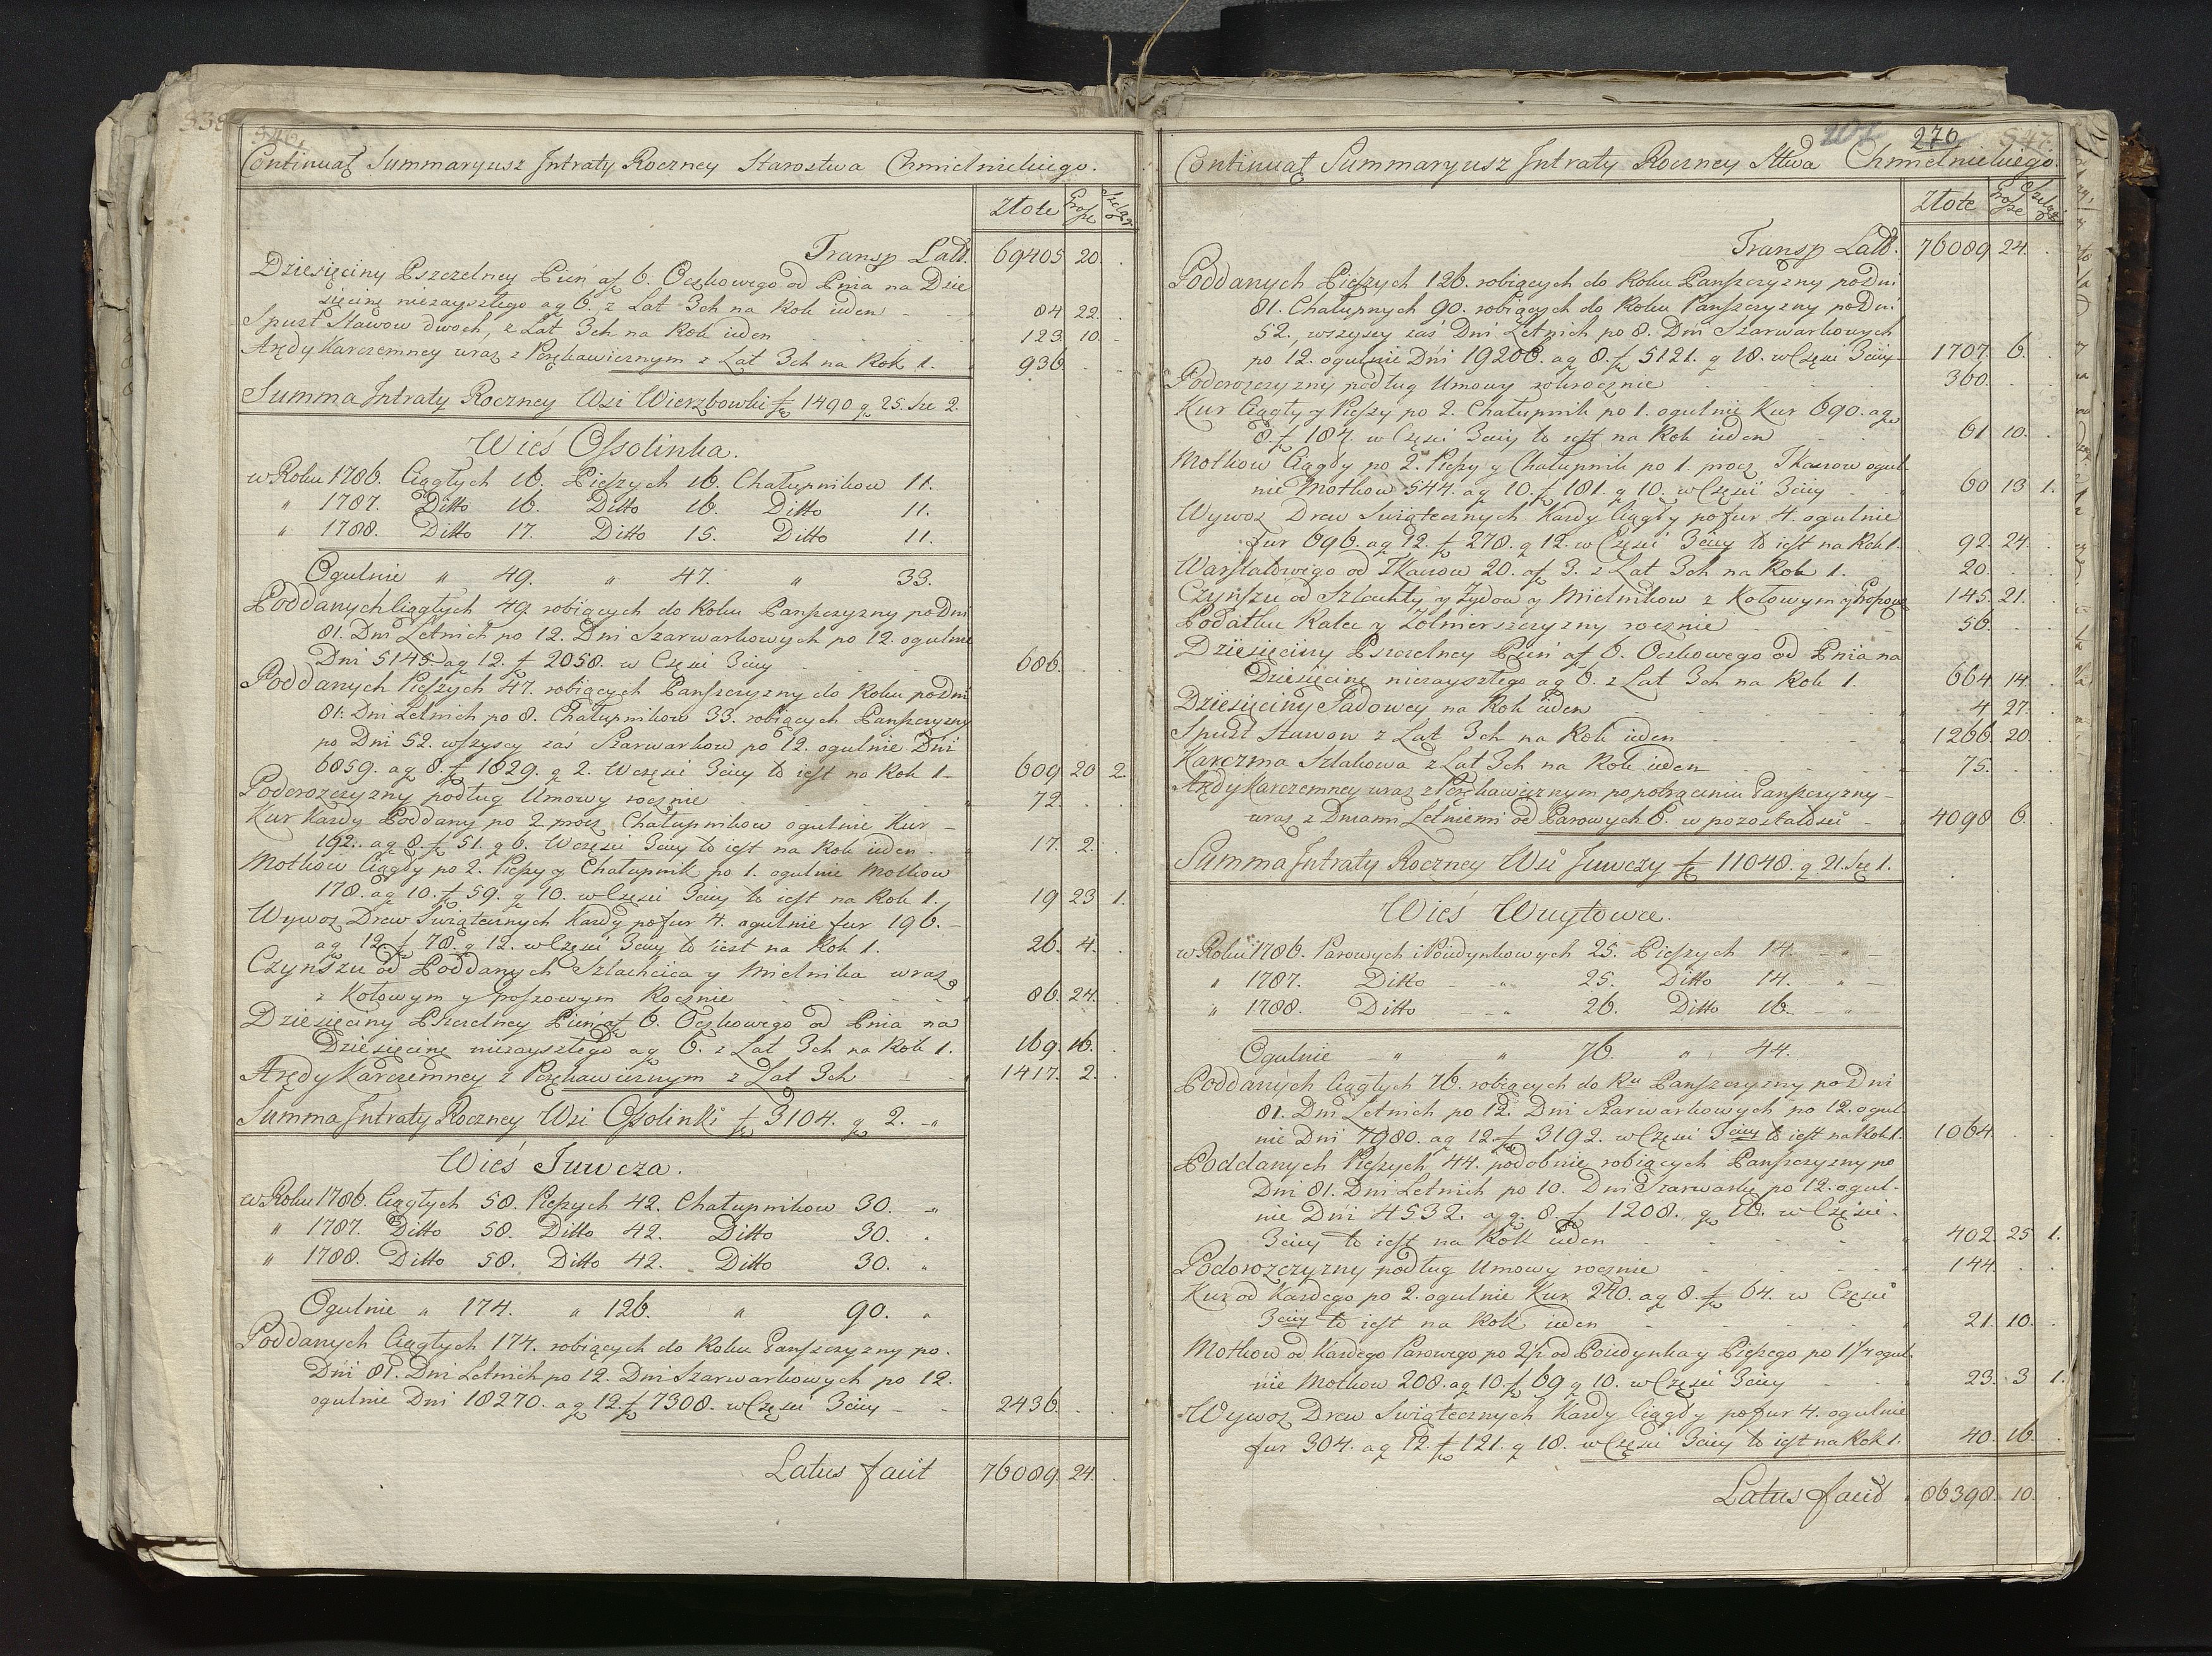 538
546.
Continuat Summaryusz Jntraty Roczney Starostwa Chmielnickiego.
Złote Grosze Szelągi
Transp Latus. 69405 20.
Dziesięciny Pszczelney Pień af 6. Oczkowego od Pnia na Dzie
sięcinę niezayszłego ag 6. z Lat 3ch na Rok ieden 84 22.
Spust Stawow dwoch, z Lat 3ch na Rok ieden 123. 10.
Arędy Karczemney wraz z Poręhawicznym z Lat 3ch na Rok 1. 936.
Summa Jntraty Roczney Wsi Wierzbowki f 1490 g 25. Sze 2.
Wieś Ossolinka.
w Roku 1786. Ciągłych 16. Pieszych 16. Chałupnikow 11.
" 1787. Ditto 16. Ditto 16. Ditto 11.
" 1788. Ditto 17. Ditto 15. Ditto 11.
Ogulnie " 49. " 47. " 33.
Poddanych Ciągłych 49 robiących do Roku Panszczyzny po Dni
81. Dni Letnich po 12. Dni Szarwarkowych po 12. ogulnie
Dni 5145. ag 12. f 2058. w Częsci 3ciey 686.
Poddanych Pieszych 47. robiących Panszczyzny do Roku po Dni
81. Dni Letnich po 8. Chałupnikow 33. robiących Panszczyzny
po Dni 52. wszyscy zaś Szarwarkow po 12. ogulnie Dni
6859. ag 8. f 1829. g 2. W częsci 3ciey to iest na Rok 1. 609 20 2
Podorozczyzny podług Umowy rocznie 72.
Kur Kazdy Poddany po 2 procz Chałupnikow ogulnie Kur
192. ag 8. f 51. g 6. W częsci 3ciey to iest na Rok ieden 17. 2.
Motkow Ciągły po 2. Pieszy y Chałupnik po 1. ogulnie Motkow
178. ag 10. f 59. g 10. w Częsci 3ciey to iest na Rok 1. 19 23 1.
Wywoz Drew Swiątecznych Kazdy po fur 4. ogulnie fur 196.
ag 12 f 78. g 12. w Częsci 3ciey to iest na Rok 1. 26. 4.
Czynszu od Poddanych Szlachcica y Mielnika wraz
z Kołowym y Groszowym Rocznie 86. 24.
Dziesięciny Pszczelney Pień af 6. Oczkowego od Pnia na
Dziesięcinę niezayszłego ag 6. z Lat 3ch na Rok 1. 169. 16.
Arędy Karczemney z Poręhawicznym z Lat 3ch 1417. 2.
Summa Jntraty Roczney Wsi Ossolinki f 3104. g 2.
Wieś Juwcza.
w Roku 1786. Ciągłych 58. Pieszych 42. Chałupnikow 30. "
" 1787. Ditto 58. Ditto 42. Ditto 30. "
" 1788. Ditto 58. Ditto 42. Ditto 30. "
Ogulnie " 174. " 126. " 90. "
Poddanych Ciągłych 174. robiących do Roku Panszczyzny po
Dni 81. Dni Letnich po 12. Dni Szarwarkowych po 12.
ogulnie Dni 18270. ag 12. f 7308. w Częsci 3ciey 2436.
Latus facit 76089. 24.
276 547.
Continuat Summaryusz Jntraty Roczney Sttwa Chmielnickiego.
Złote Grosze Szelągi
Transp Latus. 76089 24.
Poddanych Pieszych 126. robiących do Roku Panszczyzny po Dni
81. Chałupnych 90. robiących do Roku Panszczyzny po Dni
52, wszyscy zaś Dni Letnich po 8. Dni Szarwarkowych
po 12. ogulnie Dni 19206. ag 8. f 5121. g 18. w Częsci 3ciey 1707. 6.
Podorozczyzny podług Umowy corocznie 360.
Kur Ciągły y Pieszy po 2. Chałupnik po 1. ogulnie Kur 690. ag
8. f 184. w Częsci 3ciey to iest na Rok ieden 61 10.
Motkow Ciągły po 2. Pieszy y Chałupnik po 1. procz Tkaczow ogul
nie Motkow 544. ag 10. f 181. g 10. w Częsci 3ciey 60 13 1.
Wywoz Drew Swiątecznych Kazdy Ciągły po fur 4. ogulnie
fur 696. ag 12. f 278. g 12. w Częsci 3ciey to iest na Rok 1. 92. 24.
Warsztatowego od Tkaczow 20. af 3. z Lat 3ch na Rok 1. 20.
Czynszu od Szlachty y Zydow y Mielnikow z Kołowym y Groszow. 145. 21.
Podatku Rata y Zolnierszczyzny rocznie 56.
Dziesięciny Pszczelney Pień af 6. Oczkowego od Pnia na
Dziesięcinę niezayszłego ag 6. z Lat 3ch na Rok 1. 664. 14.
Dziesięciny Sadowey na Rok ieden 4 27.
Spust Stawow z Lat 3ch na Rok ieden 1266. 20.
Karczma Szlakowa z Lat 3ch na Rok ieden 75.
Arędy Karczemney wraz z Poręhawicznym po potrąceniu Panszczyzny
wraz z Dniami Letniemi od Parowych 6. w pozostałosci 4098 6.
Summa Jntraty Roczney Wsi Juwczy f 11048. g 21. Sze 1.
Wieś Wuytowce.
w Roku 1786. Parowych i Poiedynkowych 25. Pieszych 14.
" 1787. Ditto " 25. Ditto 14. "
" 1788. Ditto " 26. Ditto 16. "
Ogulnie " " 76. " 44.
Poddanych Ciągłych 76. robiących do Ru Panszczyzny po Dni
81. Dni Letnich po 12. Dni Szarwarkowych po 12. ogul
nie Dni 7980. ag 12 f 3192. w Częsci 3ciey to iest na Rok 1. 1064.
Poddanych Pieszych 44. podobnie robiących Panszczyzny po
Dni 81. Dni Letnich po 10. Dni Szarwarku po 12. ogul-
nie Dni 4532. ag 8. f 1208. g 16. w Częsci
3ciey to iest na Rok ieden 402. 25 1.
Podorozczyzny podług Umowy rocznie 144.
Kur od Kazdego po 2. ogulnie Kur 240. ag 8. f 64. w Częsci
3ciey to iest na Rok ieden 21. 10.
Motkow od Kazdego Parowego po 2 1/2 od Poiedynka y Pieszego po 1 1/4 ogul-
nie Motkow 208. ag 10. f 69 g 10. w Częsci 3ciey 23. 3 1.
Wywoz Drew Swiątecznych Kazdy Ciągły po fur 4. ogulnie
fur 304. ag 12. f 121. g 18. w Częsci 3ciey to iest na Rok 1. 40. 16.
Latus facit 86398. 10.